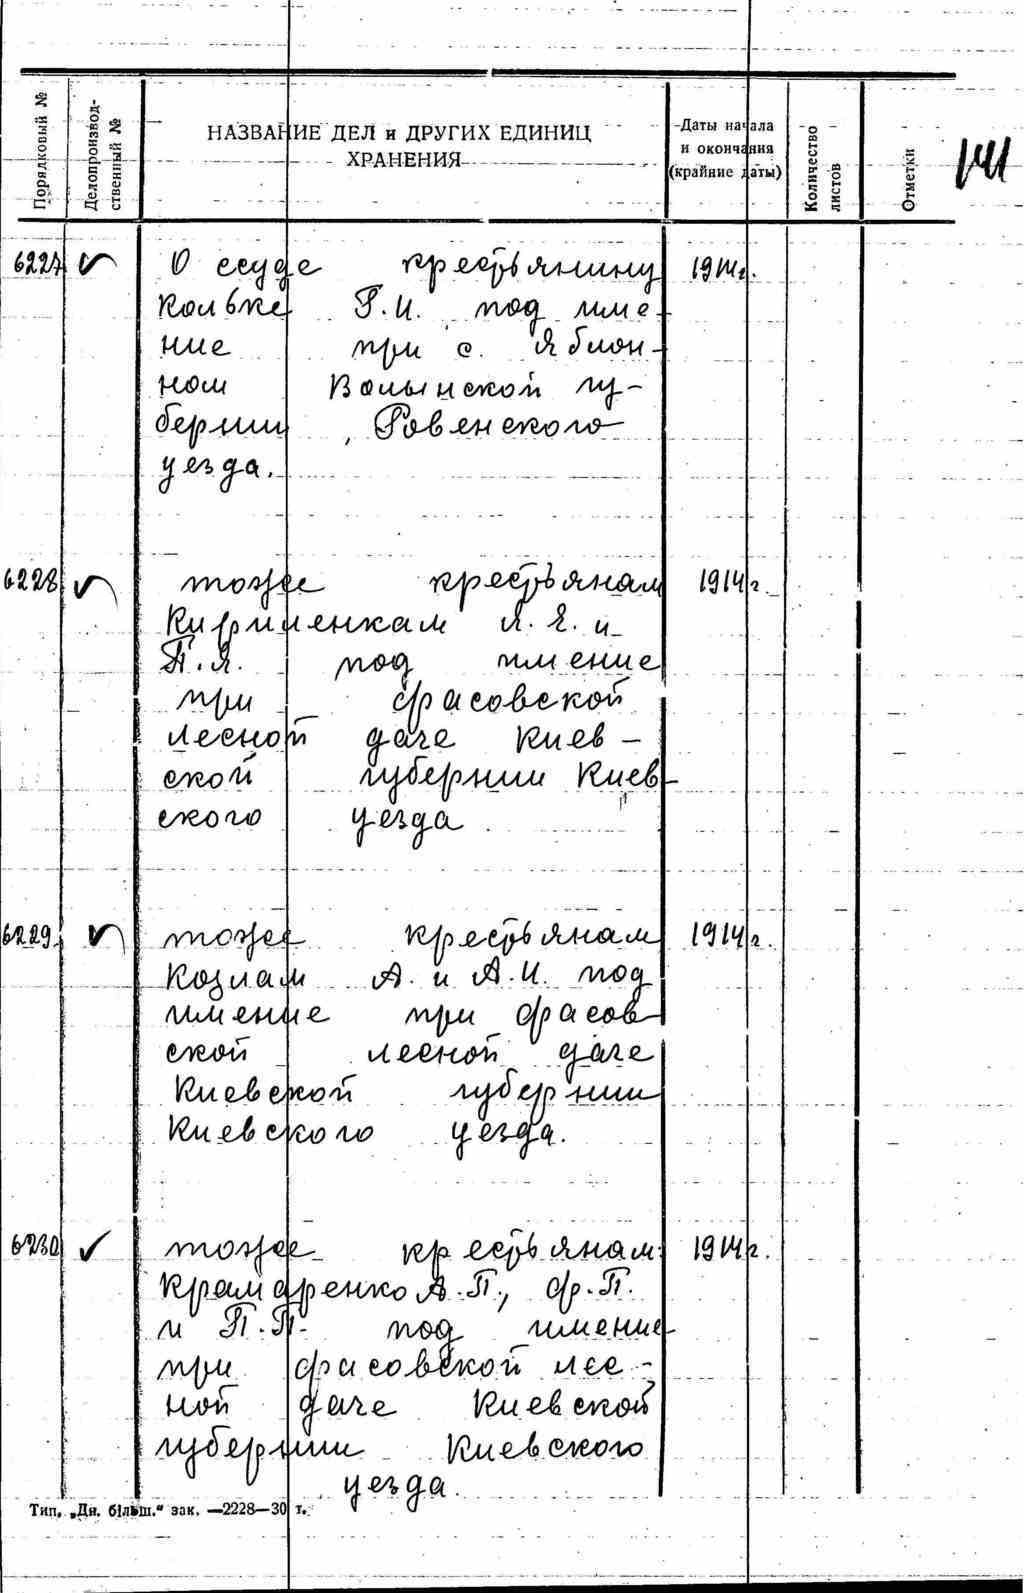 Порядковый №
Делопроизвод-
ственный №
НАЗВАНИЕ ДЕЛ и ДРУГИХ ЕДИНИЦ
ХРАНЕНИЯ
Даты начала
и окончания
(крайние даты)
Количество
листов
Отметки
6227 О ссуде крестьянину 1914г.
Кольке Г.И. под име-
ние при с. Яблон-
ном Волынской гу-
бернии, Ровенского
уезда.
6228 тоже крестьянам 1914г.
Кириленкам Я.Е. и
П.Я. под имение
при Фасовской
лесной даче Киев-
ской губернии Киев-
ского уезда
6229 тоже крестьянам 1914г.
Козлам А. и А.И. под
имение при Фасов-
ской лесной даче
Киевской губернии
Киевского уезда.
6230 тоже крестьянам 1914г.
Крамаренко А.П., Ф.П.
и П.П. под имение
при Фасовской лес-
ной даче Киевской
губернии Киевского
уезда.
Тип. „Дн. більш.“ зак. —2228—30 т.